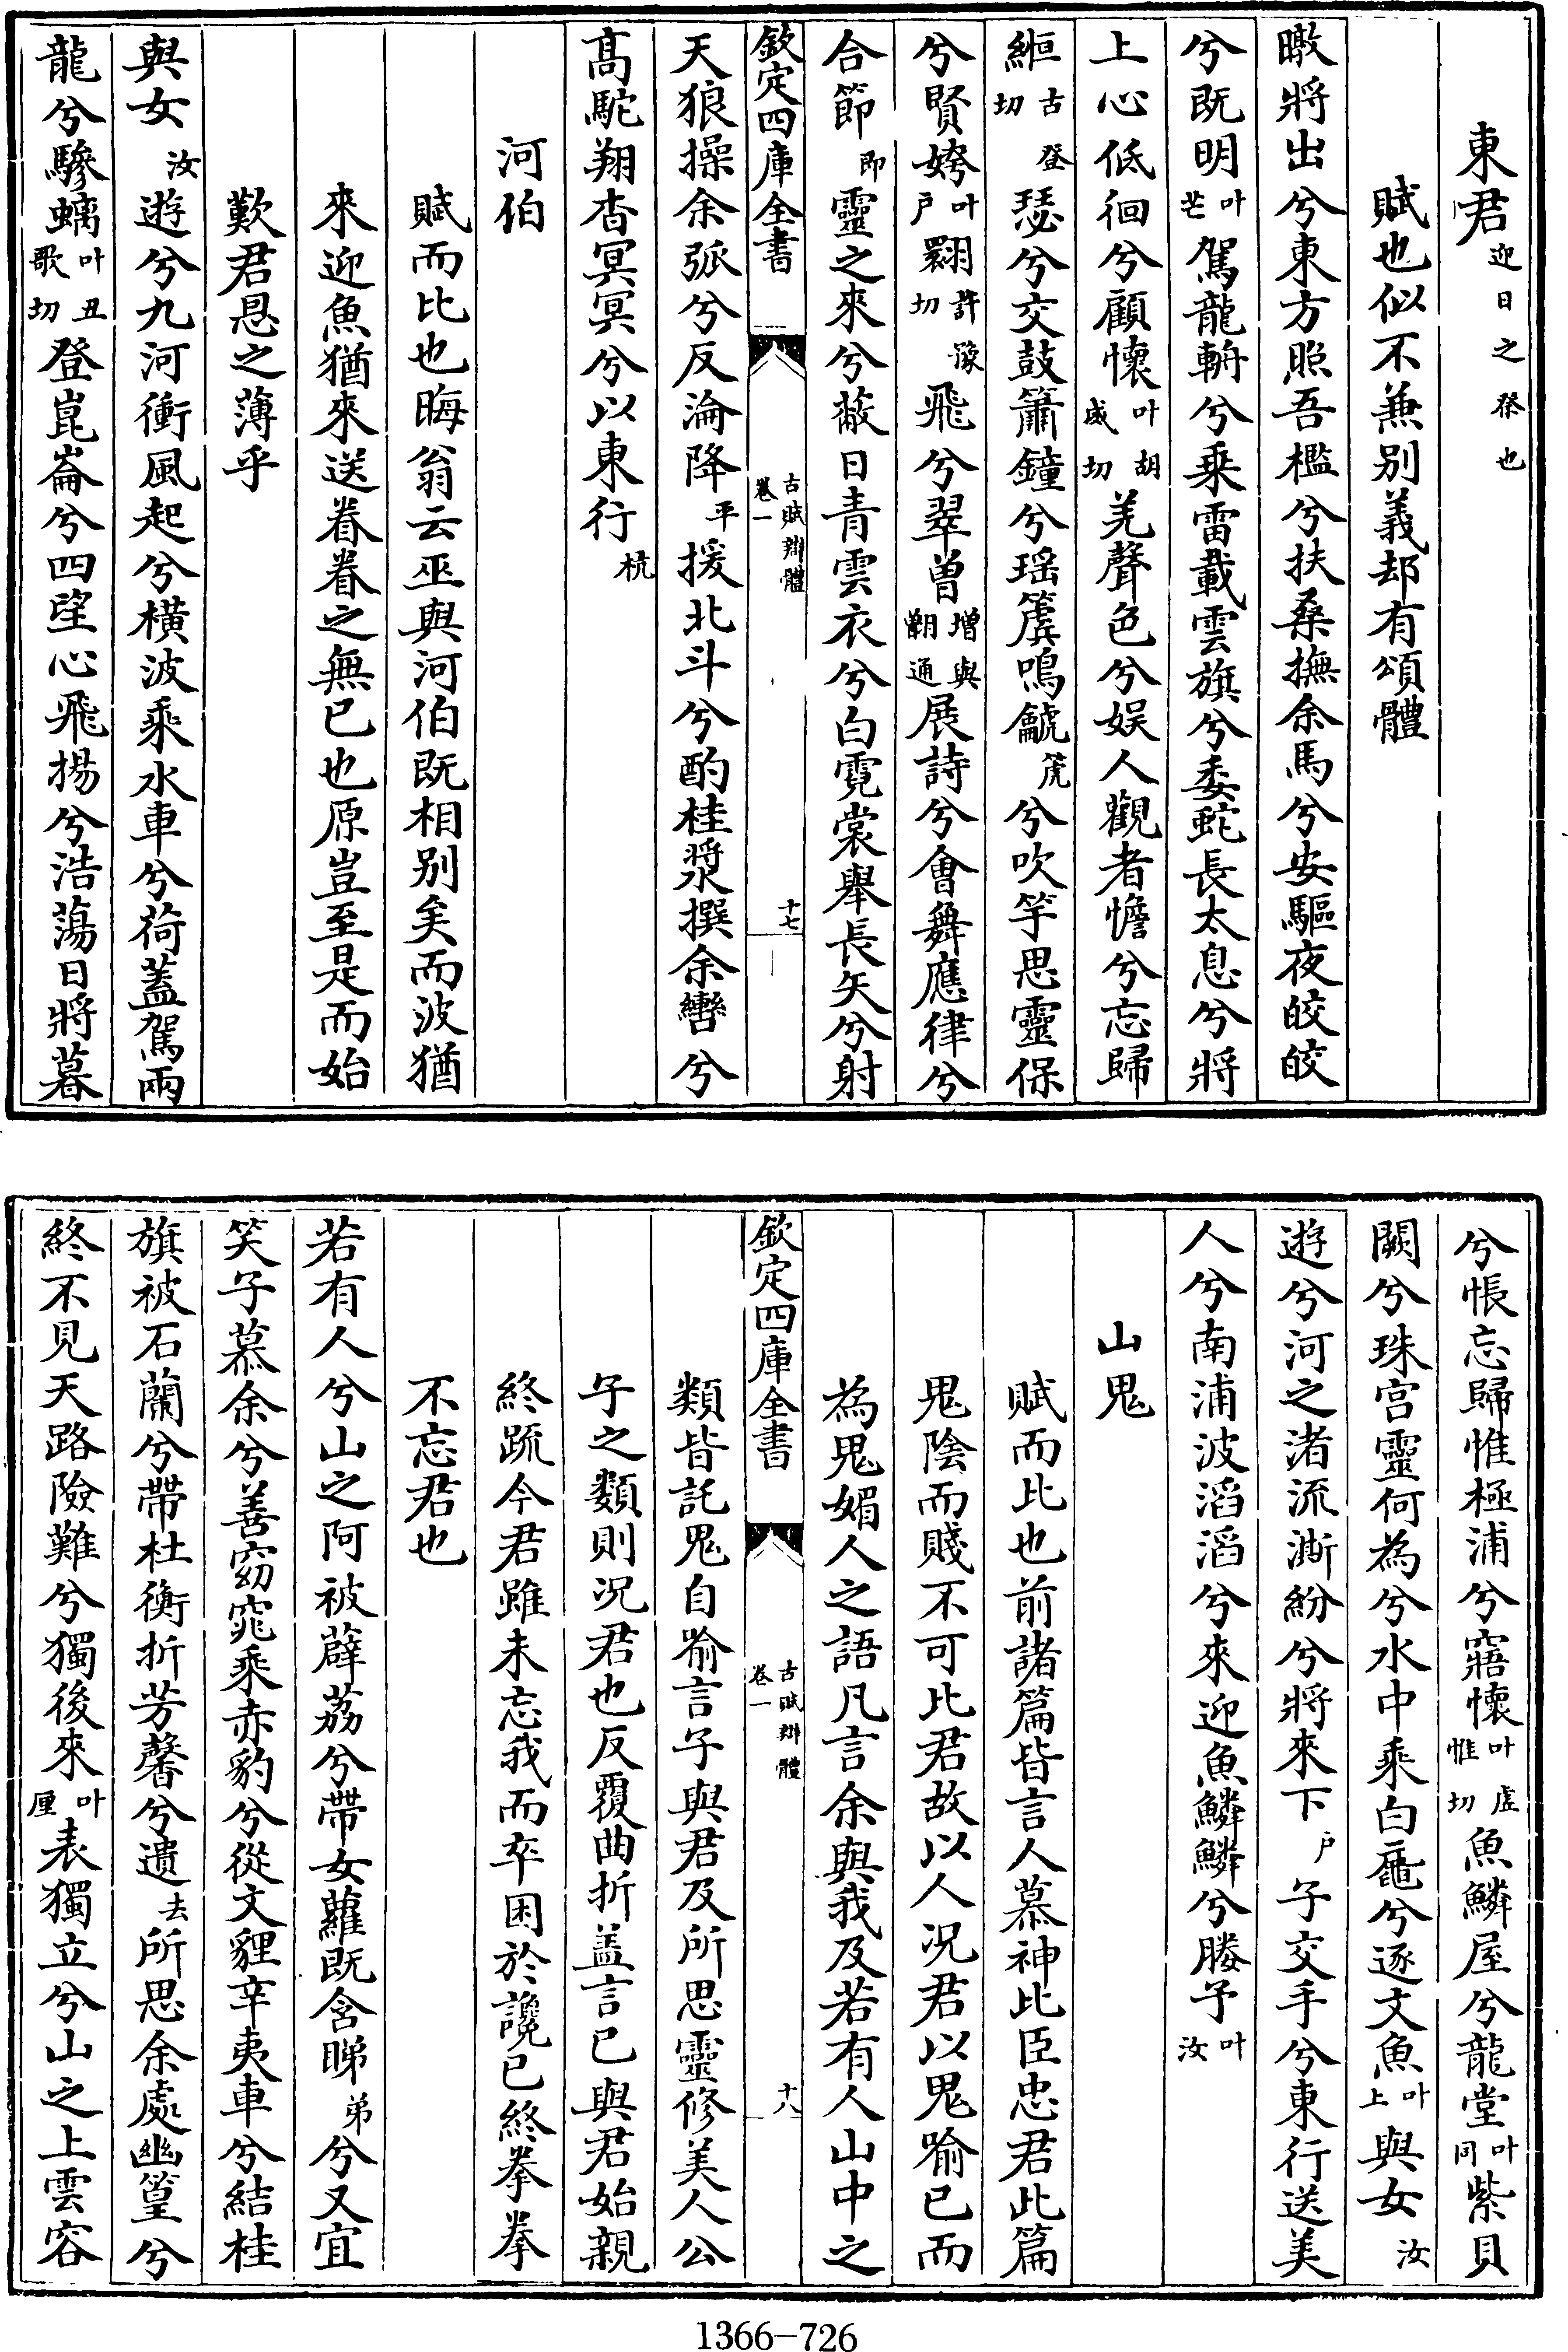 東君迎日之祭也
賦也似不兼別義却有頌體
暾將出兮東方照吾檻兮扶桑撫余馬兮安驅夜皎皎
兮既明叶芒駕龍輈兮乘雷載雲旗兮委蛇長太息兮將
上心低徊兮顧懷叶胡威切羌聲色兮娛人觀者憺兮忘歸
縆古登切瑟兮交鼓簫鐘兮瑶簴鳴鯱箎兮吹竽思靈保
兮賢姱叶戶翾許豫切飛兮翠曾增與翿通展詩兮會舞應律兮
合節即靈之來兮蔽日青雲衣兮白霓裳舉長矢兮射
欽定四庫全書 古賦辯體卷一 十七
天狼操余弧兮反淪降平援北斗兮酌桂漿撰余轡兮
髙駝翔杳冥冥兮以東行杭
河伯
賦而比也晦翁云巫與河伯既相别矣而波猶
來迎魚猶來送眷眷之無已也原豈至是而始
歎君恩之薄乎
與女汝遊兮九河衝風起兮橫波乘水車兮荷蓋駕兩
龍兮驂螭叶丑歌切登崑崙兮四望心飛揚兮浩蕩日將暮
兮悵忘歸惟極浦兮寤懷叶虛惟切魚鱗屋兮龍堂叶同紫貝
闕兮珠宮靈何為兮水中乘白黿兮逐文魚叶上與女汝
遊兮河之渚流澌紛兮將來下戶子交手兮東行送美
人兮南浦波滔滔兮來迎魚鱗鱗兮媵予叶汝
山鬼
賦而比也前諸篇皆言人慕神比臣忠君此篇
鬼陰而賤不可比君故以人况君以鬼喻已而
為鬼媚人之語凡言余與我及若有人山中之
欽定四庫全書 古賦辯體卷一 十八
類皆託鬼自喻言子與君及所思靈修美人公
子之類則况君也反覆曲折盖言已與君始親
終疏今君雖未忘我而卒困於讒已終拳拳
不忘君也
若有人兮山之阿被薜荔兮帶女蘿既含睇弟兮又宜
笑子慕余兮善窈窕乘赤豹兮從文貍辛夷車兮結桂
旗被石蘭兮帶杜衡折芳馨兮遺去所思余處幽篁兮
終不見天路險難兮獨後來叶厘表獨立兮山之上雲容
1366-726